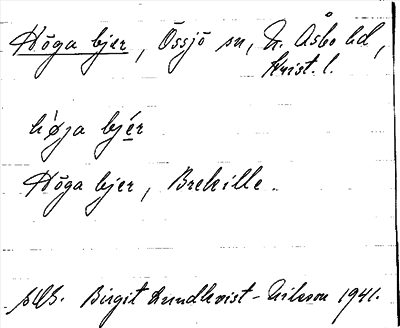 Höga bjer, Össjö sn, N. Åsbo hd,
Krist. l.
hǿja bjér
Höga bjer, Brekille.
Birgit Lundkvist-Nilsson 1941.